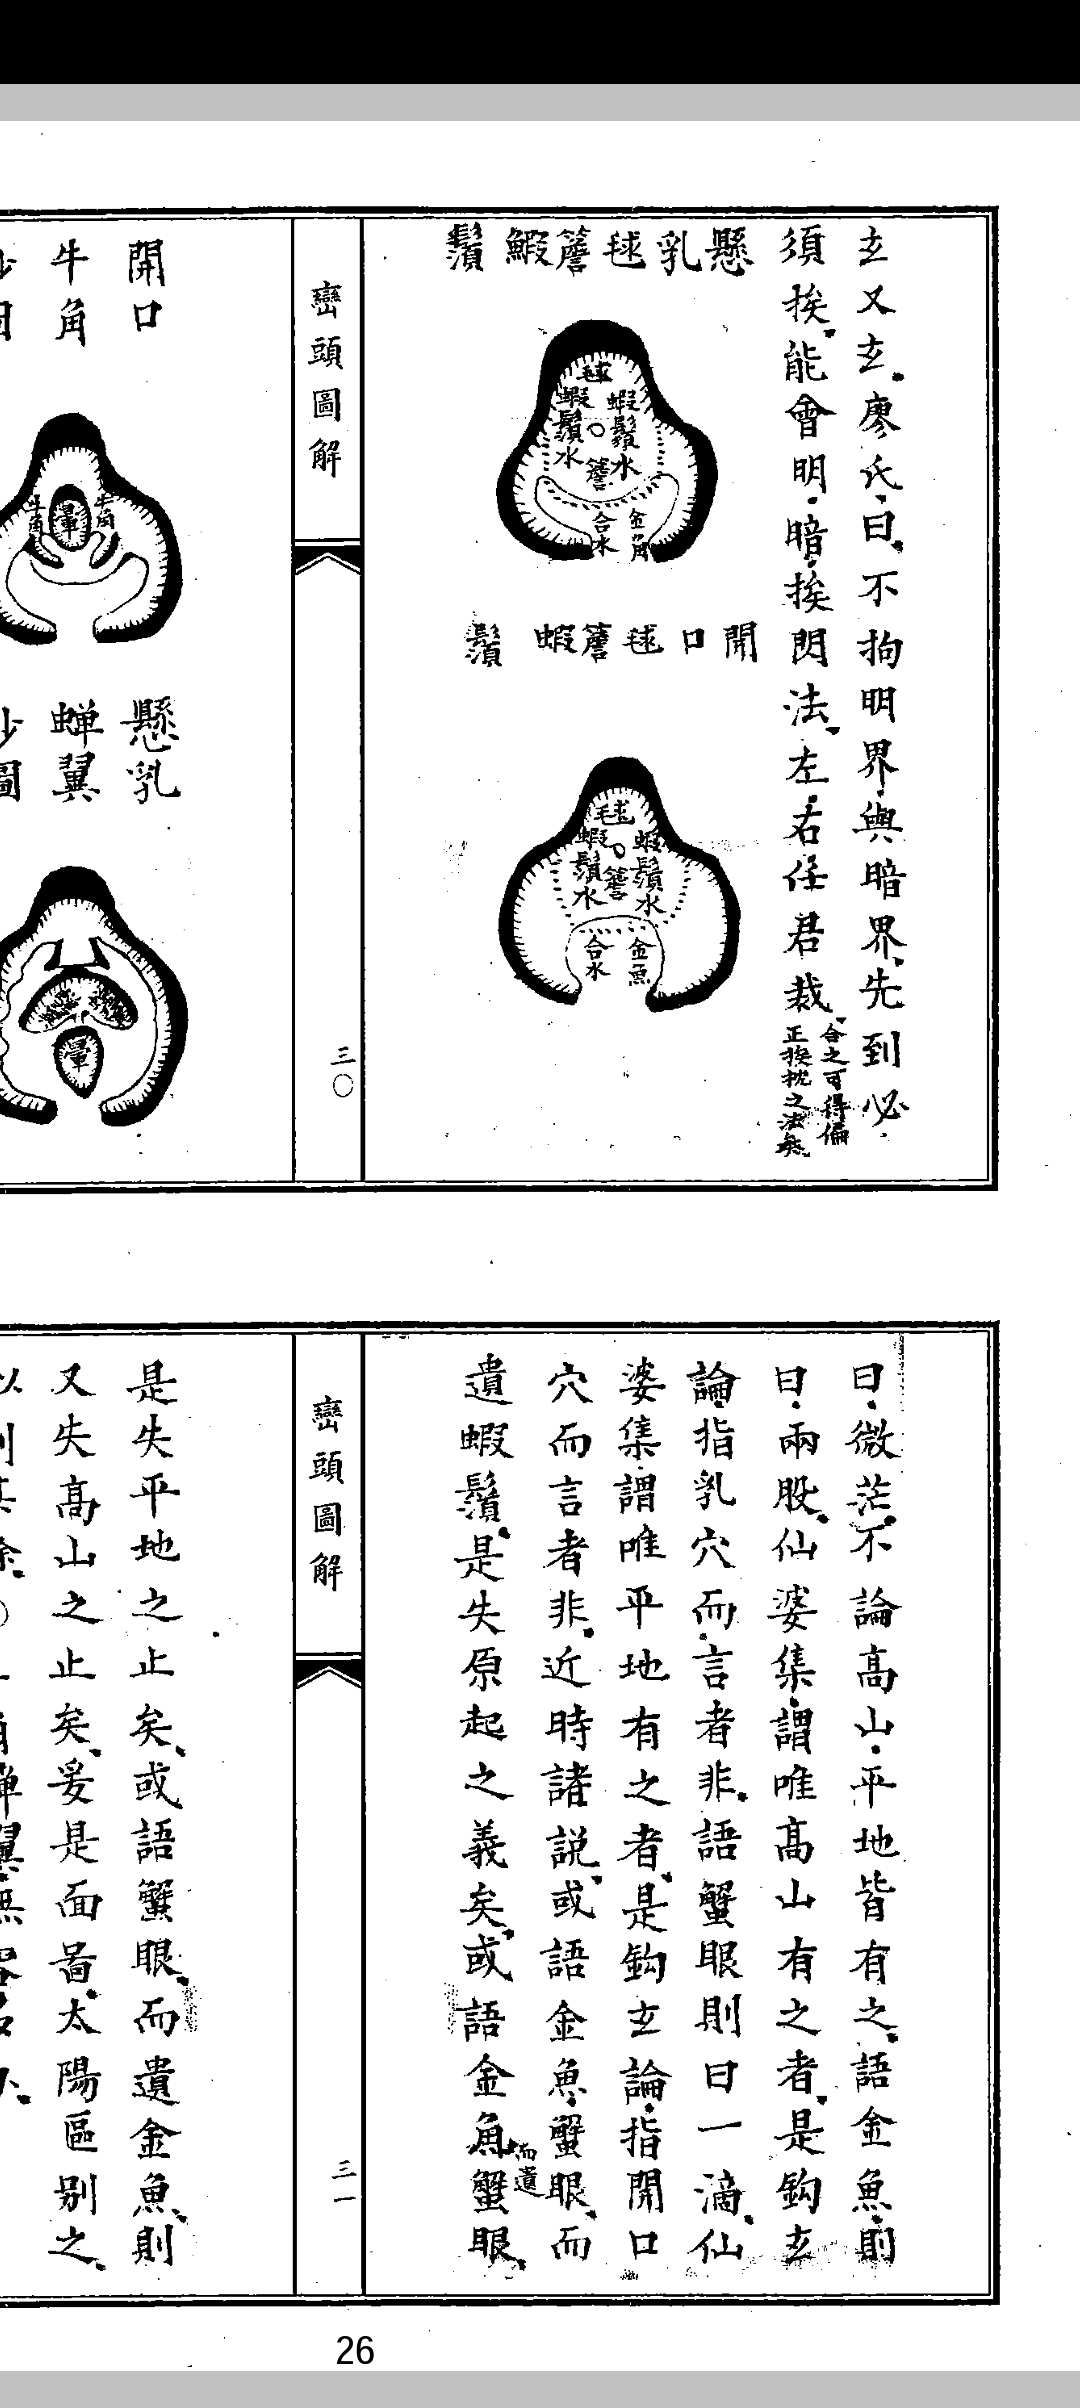 玄又玄廖氏曰不拘明界與暗界先到必
須挨能會明暗挨閃法左右任君裁
合之可得偏
正挨枕之法矣
懸乳毬簷鰕鬚
毬
蝦鬚水
蝦鬚水
簷
合水
金魚
開口毬簷蝦鬚
毬
蝦鬚水
蝦鬚水
簷
金魚
合水
巒頭圖解
三〇
開口
牛角
牛角
暈
牛角
懸乳
蝉翼
暈
曰微茫不論高山平地皆有之語金魚則
曰兩股仙婆集謂唯高山有之者是鈎玄
論指乳穴而言者非語蟹眼則曰一滴仙
婆集謂唯平地有之者是鈎玄論指開口
穴而言者非近時諸説或語金魚蟹眼而
遺蝦鬚是失原起之義矣或語金魚而遺蟹眼
巒頭圖解
三一
是失平地之止矣或語蟹眼而遺金魚則
又失高山之止矣爰是面啚太陽區别之
26